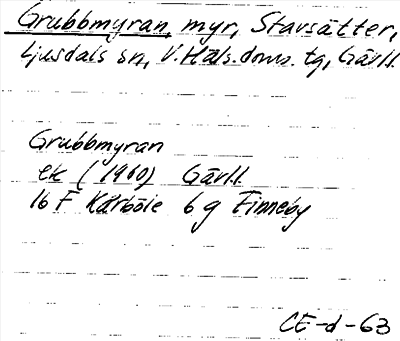 Grubbmyran, myr, Stavsätter,
Ljusdals sn, V. Häls. doms. tg, Gävl.l.
Grubbmyran
ek (1960) Gävl.l
16 F Kårböle 6g Finneby
CE-d-63